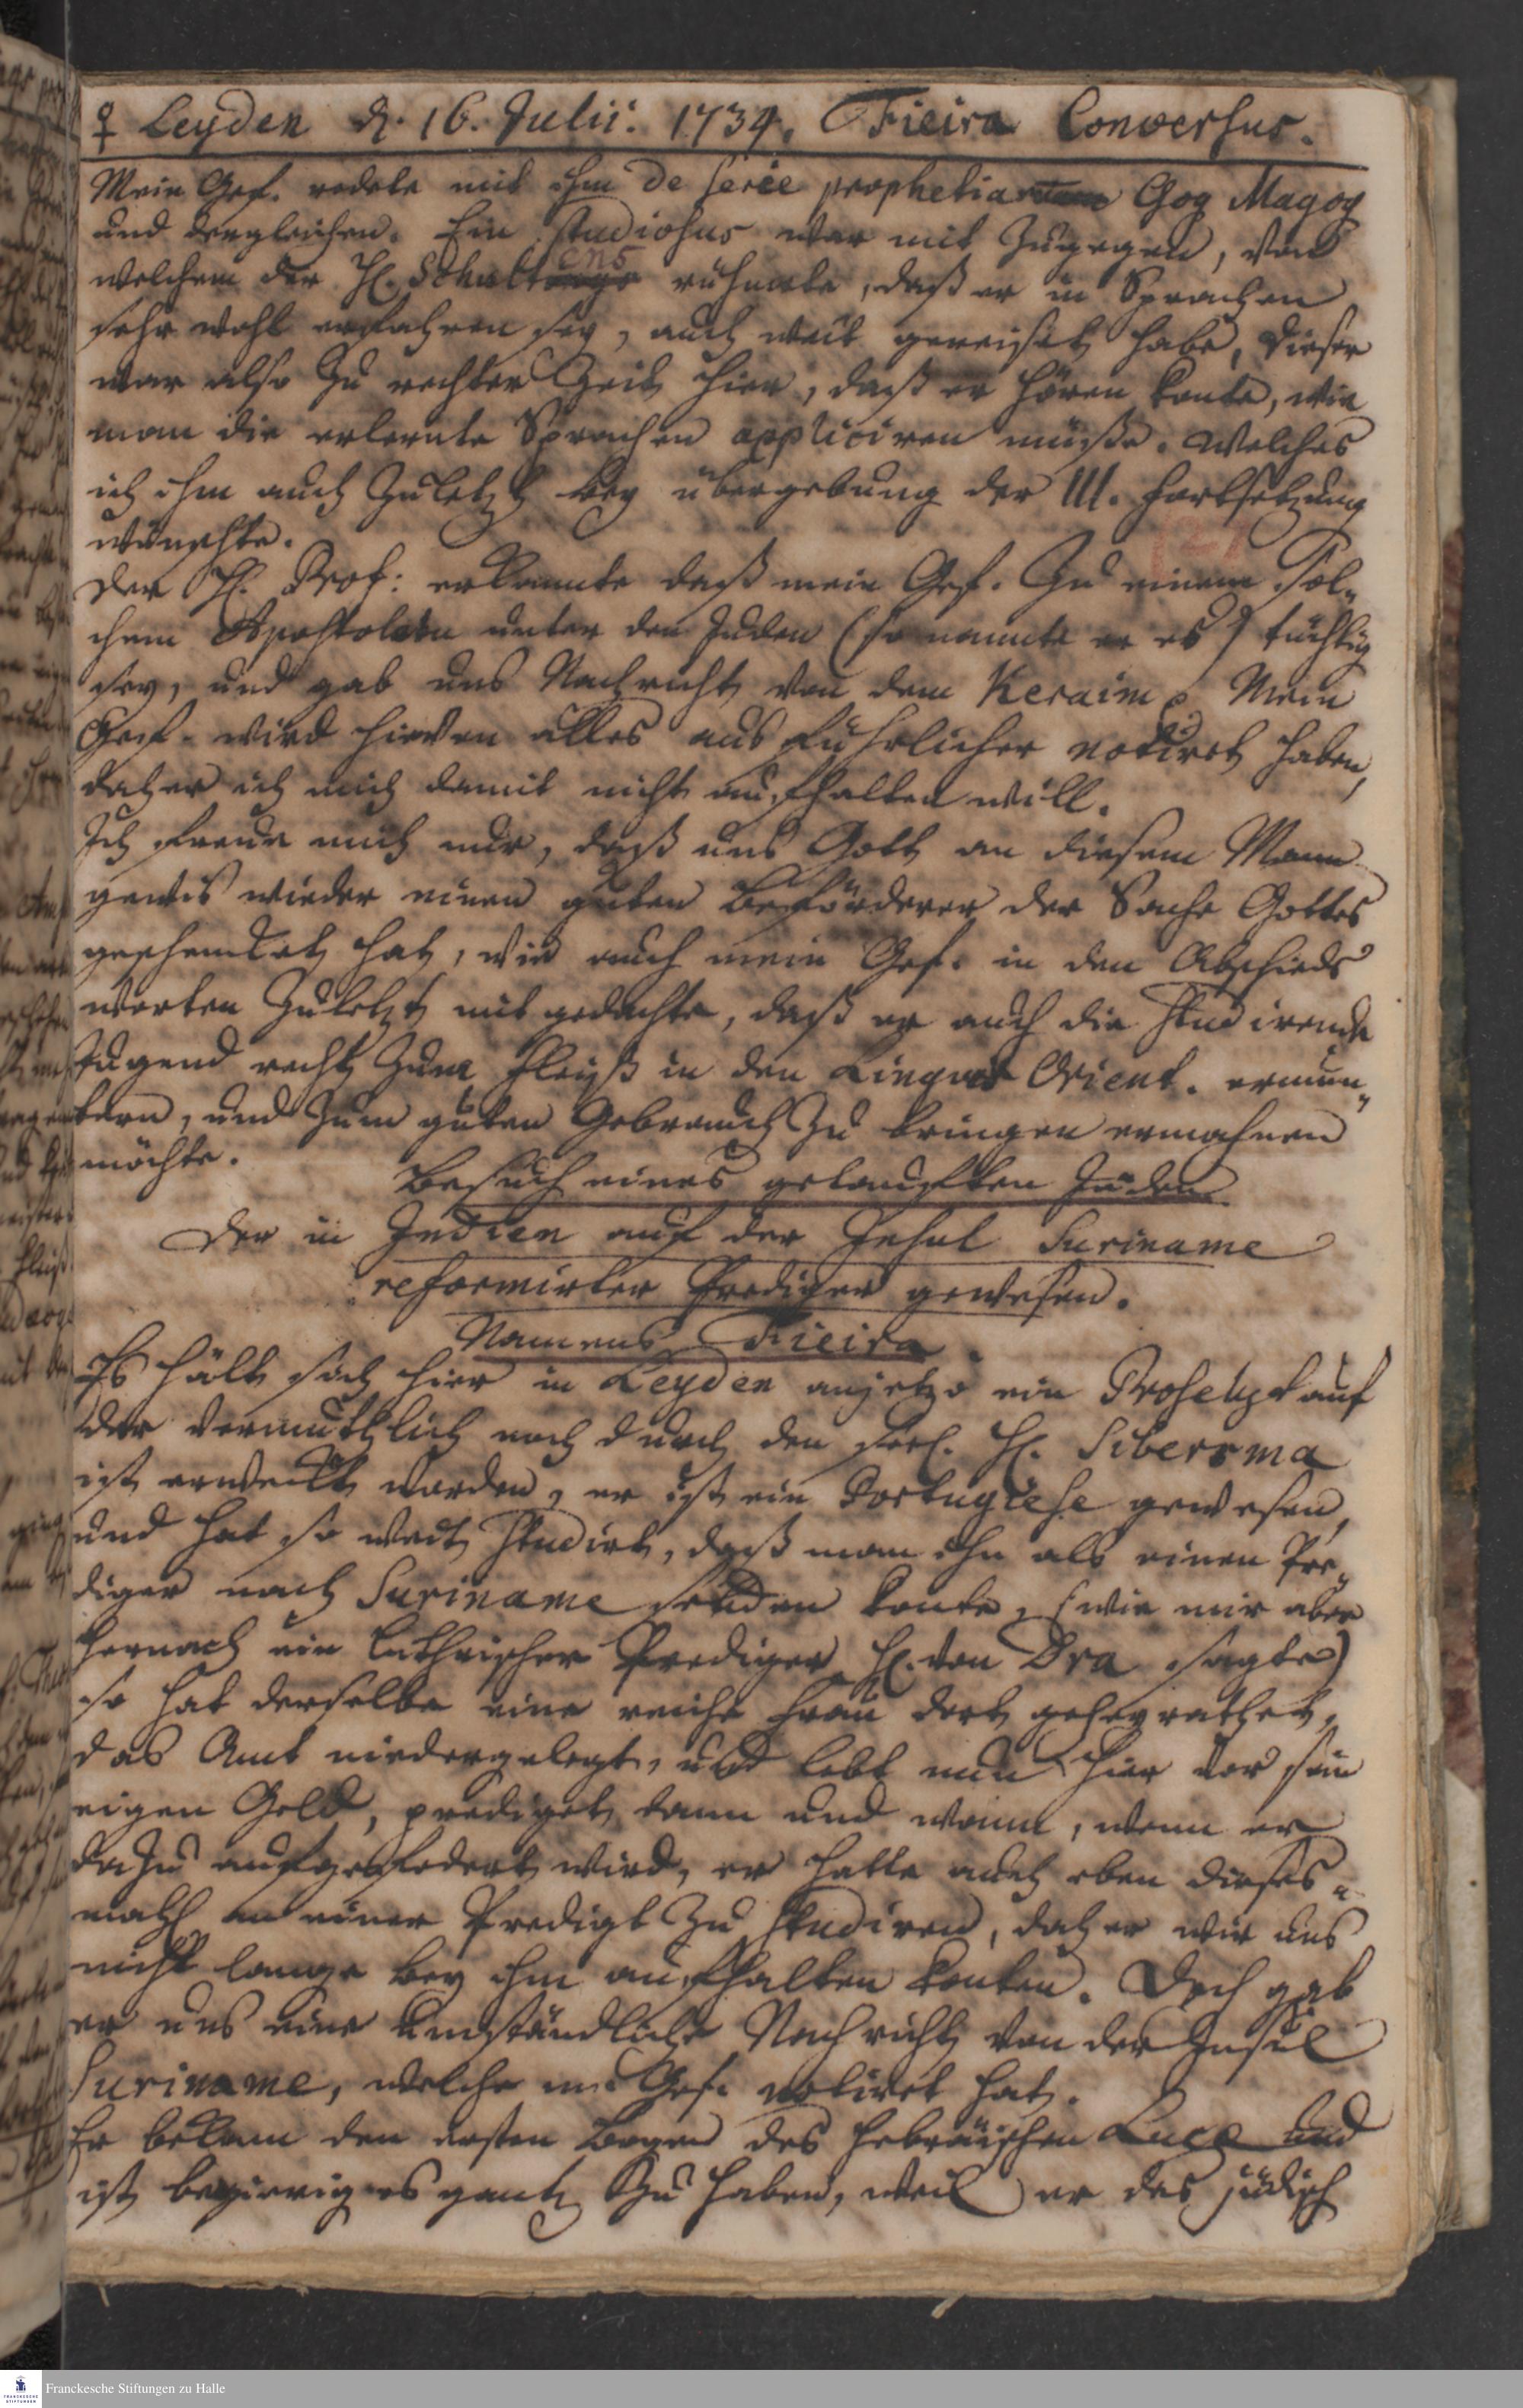 ♀ Leyden d. 16. Julii. 1734. Fieira Conversus.
Mein Gef. redete mit ihm de serie prophetiarum Gog Magog
und dergleichen. Ein studiosus war mit zugegen, von
welchem der H. Schultens rühmte, daß er in Sprachen
sehr wohl erfahren sey, auch weit gereiset habe, dieser
war also zu rechter Zeit hier, daß er hören konte, wie
man die erlernte Sprachen appliciren müße. Welches
ich ihm auch zuletzt bey übergebung der III. Fortsetzung
wünschte.
Der H. Prof: erkannte daß mein Gef. zu einem sol-
chem Apostolen unter den Juden (so nannte er es) tüchtig
sey, und gab uns Nachricht von dem Keraim. Mein
Gef. wird hievon alles ausführlicher notiret haben,
daher ich mich damit nicht aufhalten will.
Ich freue mich nur, daß uns Gott an diesem Mann
gewis wieder einen guten Beförderer der Sache Gottes
geschencket hat, wie auch mein Gef. in den Abschieds
worten zuletzt mit gedachte, daß er auch die studirende
Jugend recht zum Fleiß in den Linguis Orient. ermun-
tern, und zum guten Gebrauch zu bringen ermahnen
möchte.
Besuch eines getaufften Juden
Der in Indien auf der Insul Suriname
reformirter Prediger gewesen.
Namens Fieira.
Es hält sich hier in Leyden anjetzo ein Proselyt auf
der vermuthlich noch durch den seel. H. Sibersma
ist erweckt worden, er ist ein Portugiese gewesen,
und hat so weit studirt, daß man ihn als einen Pre-
diger nach Suriname senden konte, (wie mir aber
hernach ein luthrischer Prediger H. von Dra sagte)
so hat derselbe eine reiche Frau dort geheyrathet,
das Amt niedergelegt, und lebt nun hier vor sein
eigen Geld, prediget dann und wann, wenn er
dazu aufgefodert wird, er hatte auch eben dieses-
mahl an einer Predigt zu studiren, daher wir uns
nicht lange bey ihm aufhalten konten. Doch gab
er uns eine umständliche Nachricht von der Insul
Suriname, welche m. Gef. notiret hat.
Er bekam den ersten Bogen des hebräischen Lucæ und
ist begierig es gantz zu haben, weil er das jüdisch
Franckesche Stiftungen zu Halle